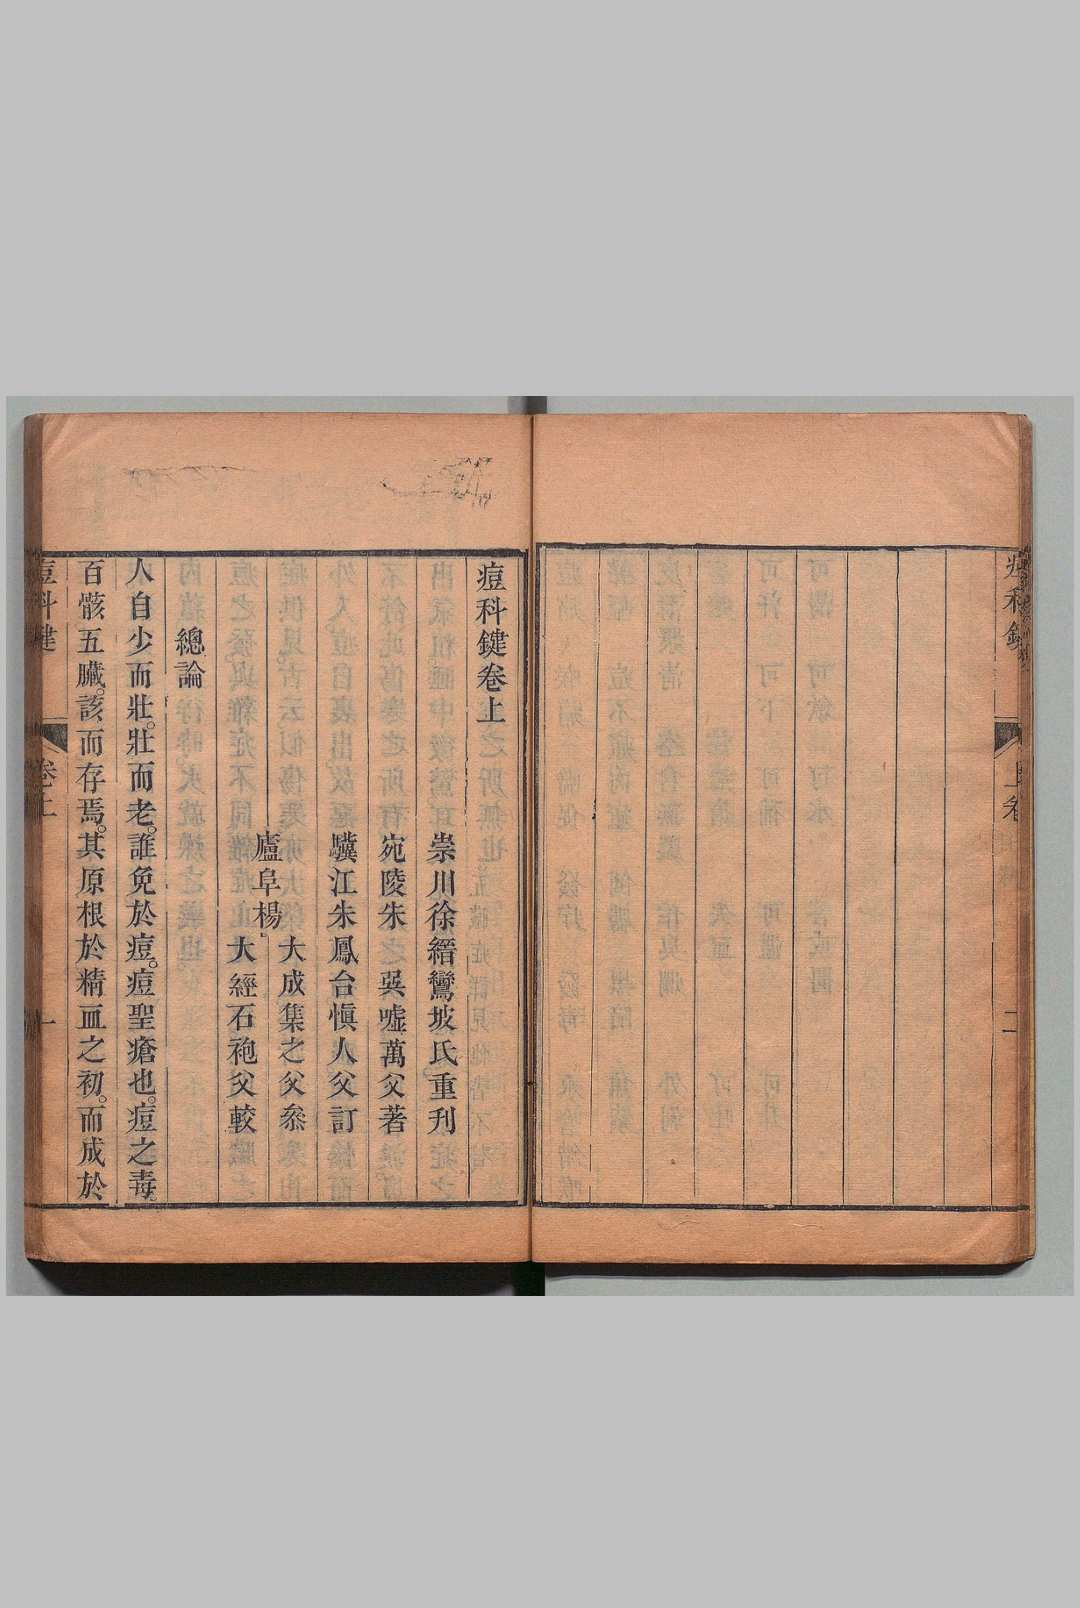 痘科鍵
上卷
二
痘科鍵卷上
崇川徐縉鸞坡氏重刊
宛陵朱之吳嘘萬父著
驥江朱鳳台慎人父訂
廬阜楊
大成集之父叅
大經石袍父較
總論
人自少而壯。壯而老。誰免於痘。痘聖瘡也。痘之毒。
百骸五臟。該而存焉。其原根於精血之初。而成於
痘科鍵
卷上
一